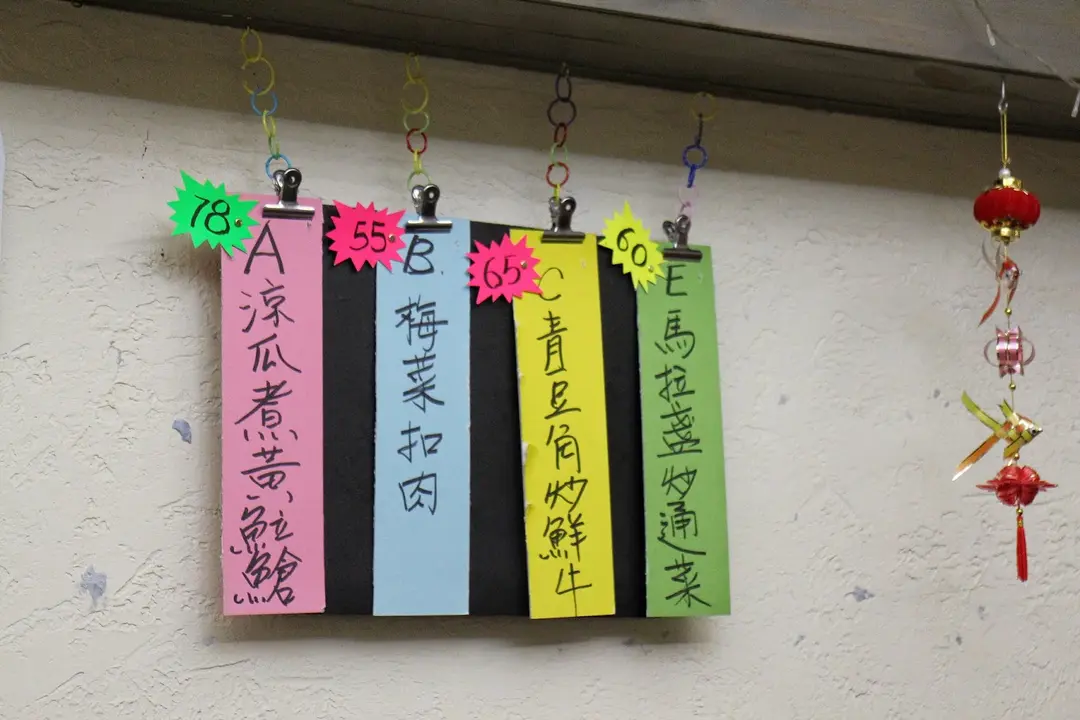 78.
A 涼瓜煮黃𩶘䱽
55.
B. 梅菜扣肉
65.
C 青豆角炒鮮牛
60.
E 馬拉盞炒通菜